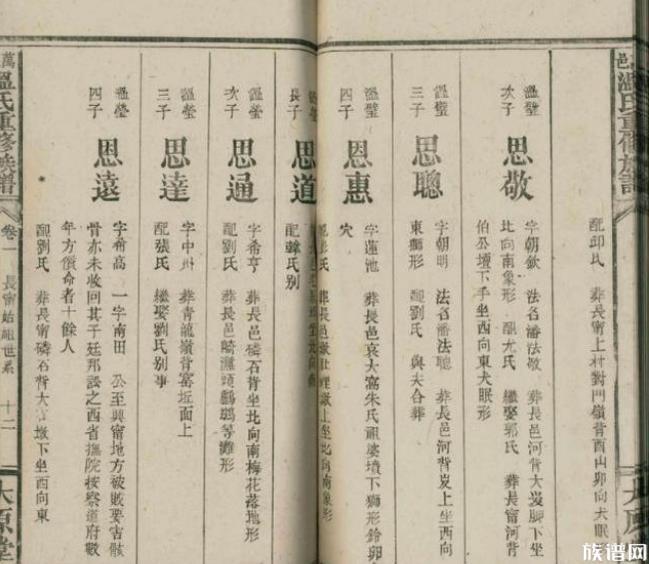 邑溫氏重修族譜
太原堂
配邱氏 葬長甯上村對門嶺背酉山卯向犬眠
溫璧
次子
思敬
字朝欽 法名潘法敬 葬長邑河背大崀脚下坐
比向南象形 配尤氏 繼娶郭氏 葬長甯河背
伯公壇下手坐西向東犬眠形
溫璧
三子
思聰
字朝明 法名潘法聰 葬長邑河背崀上坐西向
東獅形 配劉氏 與夫合葬
溫璧
四子
恩惠
字蓮池 葬長邑哀大窩朱氏祖婆墳下獅形鈴卵
穴
長子
思道
配韓氏別
溫瑩
次子
思通
字希亨 葬長邑磷石背坐北向南梅花落地形
配劉氏 葬長邑 灘頭鸕鷀等灘形
溫瑩
三子
思達
字中 葬青龍嶺背窰坵面上
配張氏 繼娶劉氏別事
溫瑩
四子
恩遠
字希高 一字南田 公至興甯地方被賊要害骸
骨亦未收回其子廷那訟之西省撫院按察道府數
年方償命者十餘人
配劉氏 葬長甯磷石背大 墩下坐西向東
萬
溫氏重修族譜
卷一 長甯始祖世系 十二
太原堂
族谱网